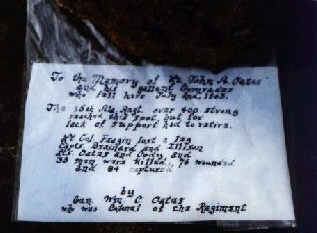 To the Memory of Lt. John A. Oates
and his gallant Comrades
who fell here July 2nd, 1863.
The 15th Ala. Regt. over 400 strong
reached this spot, but for
lack of support had to retire.
Lt Col. Feagin lost a leg
Capts. Brainard and Ellison
Lts. Oates and Cody and
33 men were killed, 76 wounded
and 84 captured
by
Gen. Wm C. Oates
who was Colonel of the Regiment